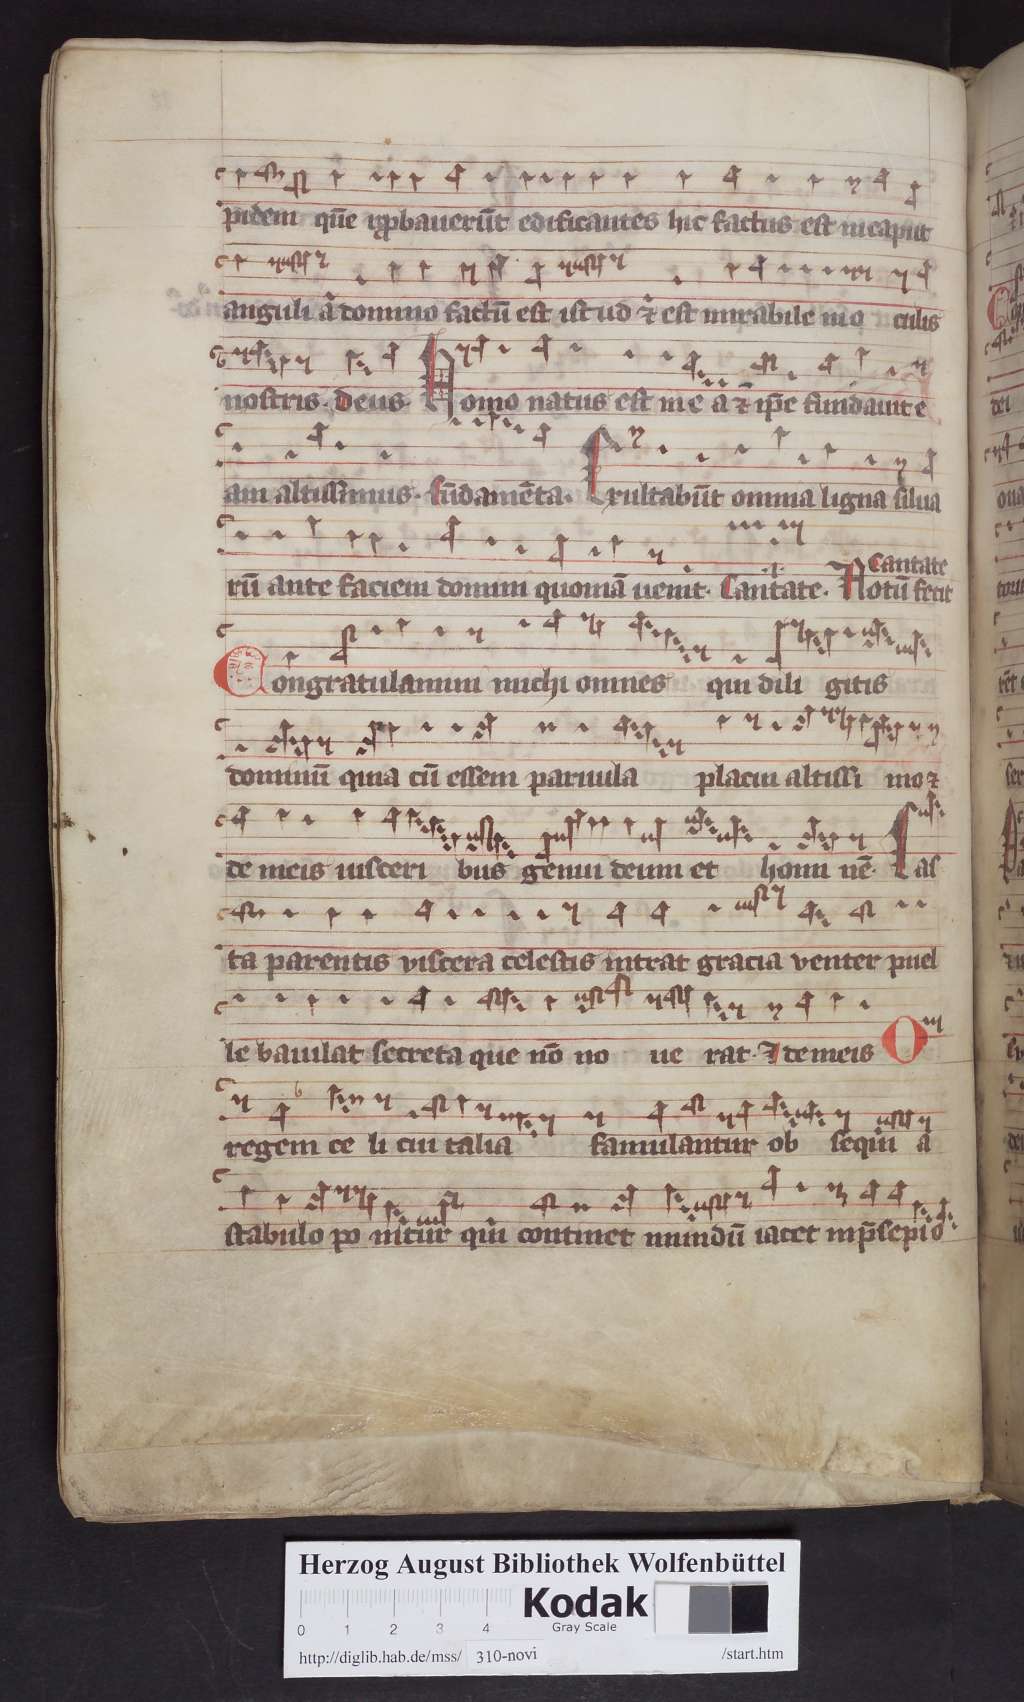 pidem quē rͥpbauerūt edificantes hic factus est in caput
anguli a domino factū est istud ⁊ est mirabile in o culis
nostris. Deus. Homo natus est in e a ⁊ ip̄e fundauit e
am altissimus. fūdamēta. Exultabūt omnia ligna silua
rū ante faciem domini quoniā uenit. Cantate. Notū fecit
Cantate
Congratulamini michi omnes qui dili gitis
dominū quia cū essem paruula placui altissi mo ⁊
de meis uisceri bus genui deum et homi nē. Cas
ta parentis viscera celestis intrat gracia venter puel
le baiulat secreta que nō no ue rat. ⁊ de meis O
regem ce li cui talia famulantur ob sequi a
stabulo po nitur qui continet mundū iacet in p̄sepio
Herzog August Bibliothek Wolfenbüttel
0 1 2 3 4
Kodak
Gray Scale
http://diglib.hab.de/mss/ 310-novi /start.htm